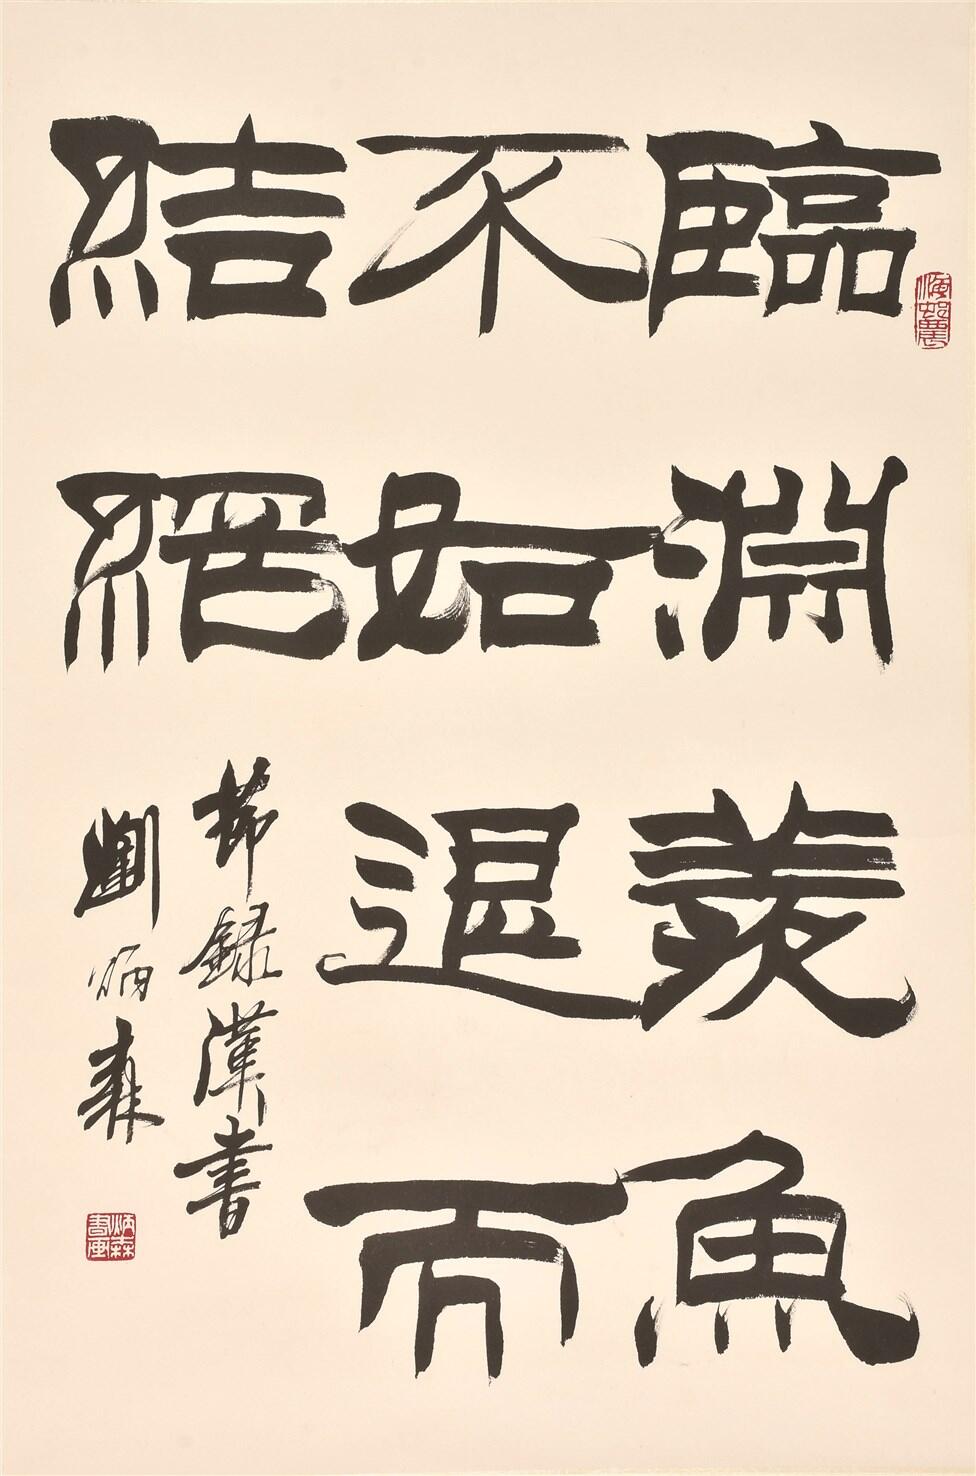 臨淵羨魚
不如退而
結網
節録漢書
劉炳森
炳森書画